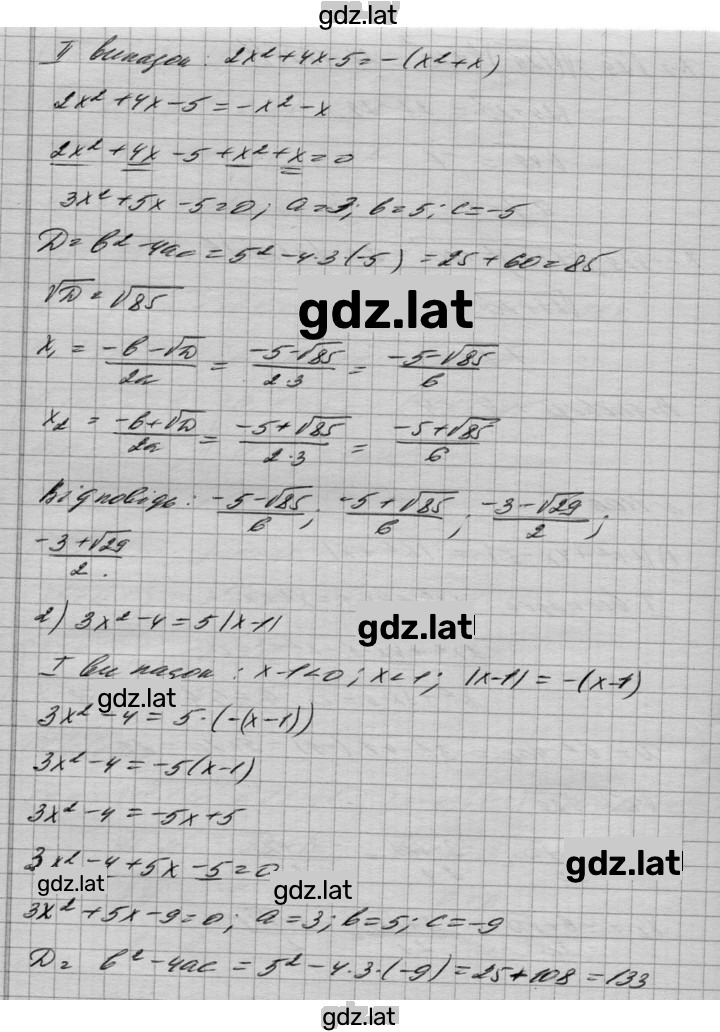 gdz.lat
II випадок: 2x² + 4x - 5 = -(x² + x)
2x² + 4x - 5 = -x² - x
2x² + 4x - 5 + x² + x = 0
3x² + 5x - 5 = 0; a = 3; b = 5; c = -5
D = b² - 4ac = 5² - 4·3·(-5) = 25 + 60 = 85
√D = √85
gdz.lat
x₁ = (-b - √D)/2a = (-5 - √85)/2·3 = (-5 - √85)/6
x₂ = (-b + √D)/2a = (-5 + √85)/2·3 = (-5 + √85)/6
Відповідь: (-5 - √85)/6; (-5 + √85)/6; (-3 - √29)/2;
(-3 + √29)/2.
2) 3x² - 4 = 5|x - 1|
gdz.lat
I випадок: x - 1 < 0; x < 1; |x - 1| = -(x - 1)
gdz.lat
3x² - 4 = 5·(-(x - 1))
3x² - 4 = -5(x - 1)
3x² - 4 = -5x + 5
3x² - 4 + 5x - 5 = 0
gdz.lat
gdz.lat
gdz.lat
3x² + 5x - 9 = 0; a = 3; b = 5; c = -9
D = b² - 4ac = 5² - 4·3·(-9) = 25 + 108 = 133
gdz.lat